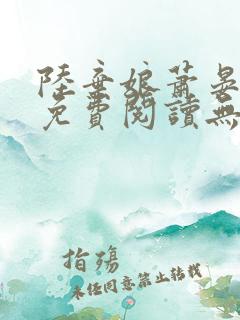 陸棄娘蕭晏
免費閱讀無
指殤
未任同意禁止转载